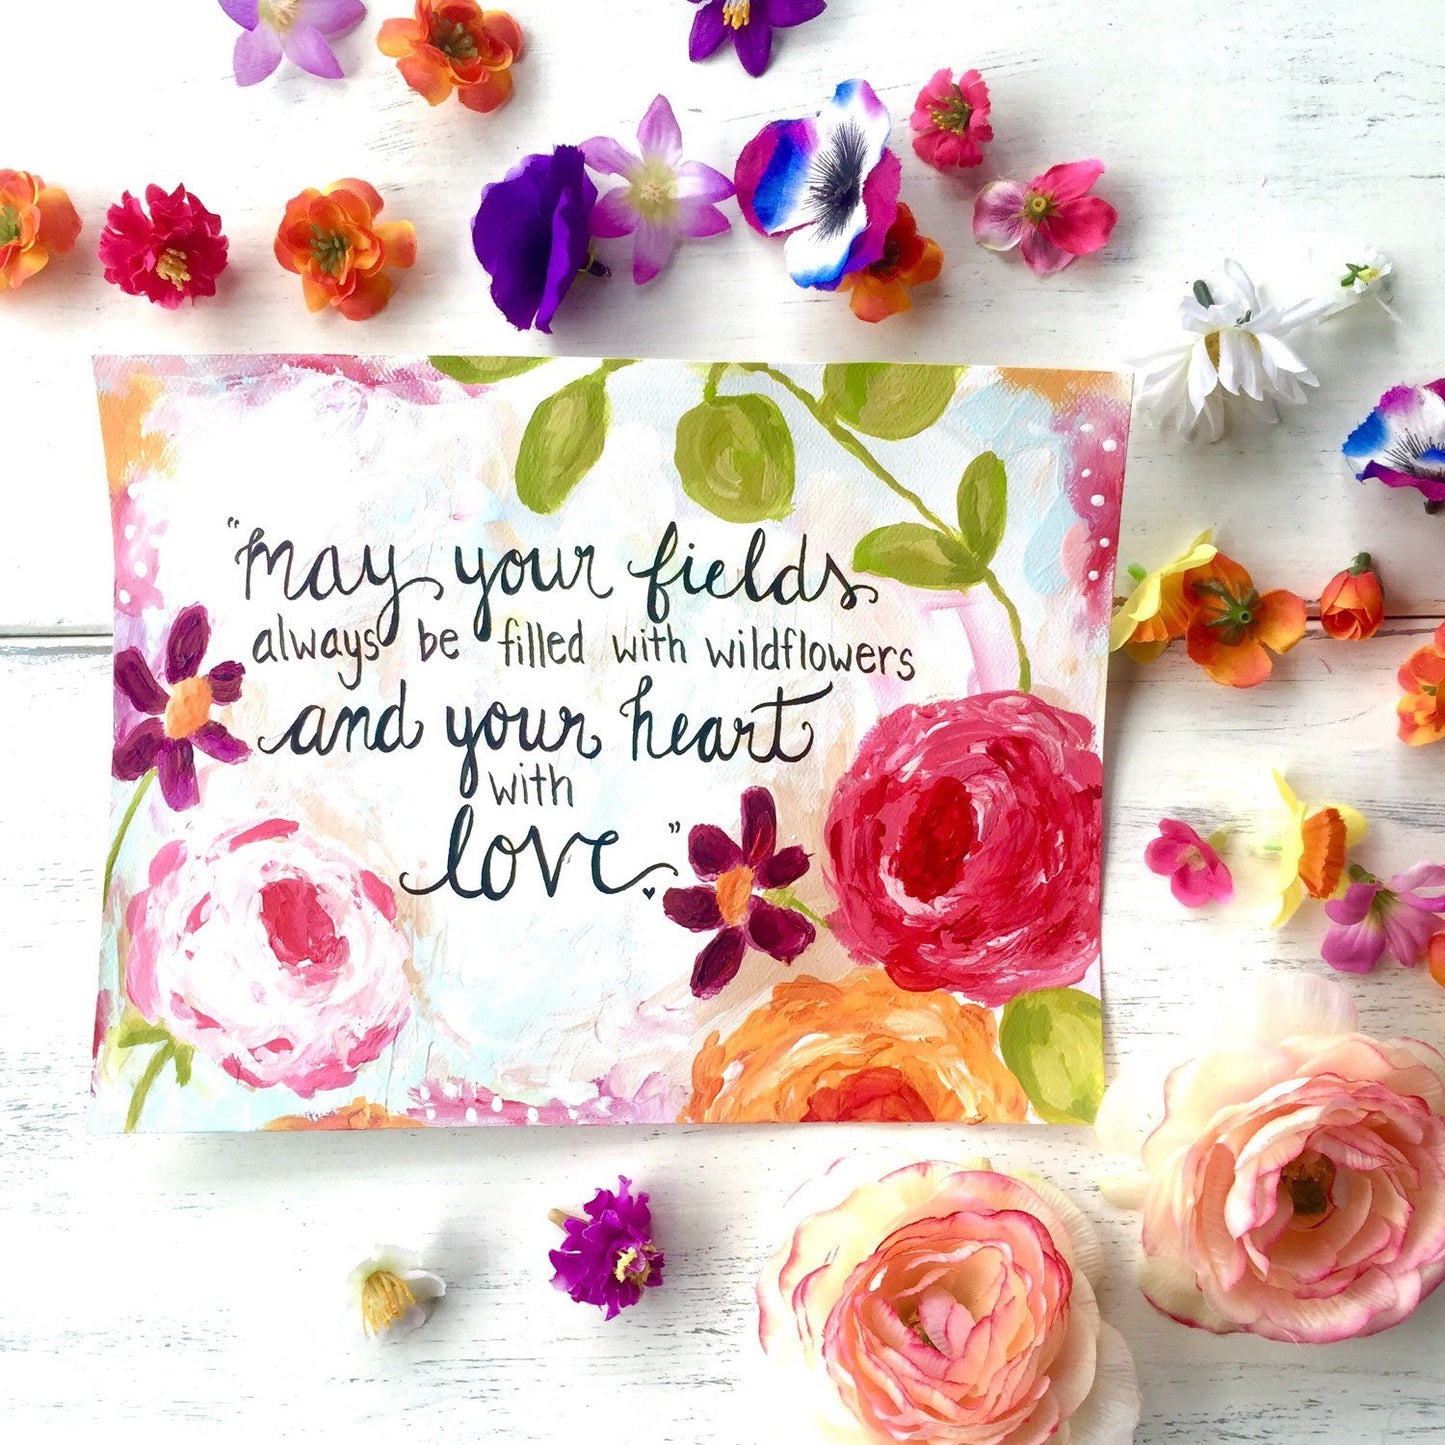 "may your fields
always be filled with wildflowers
and your heart
with
love."